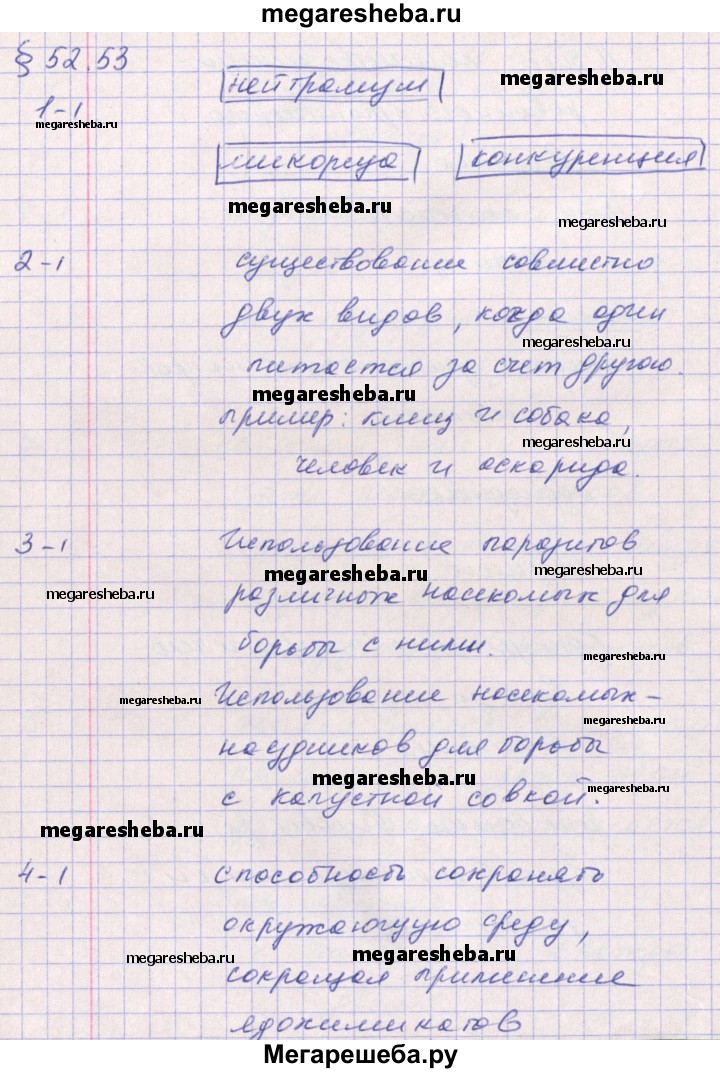 megaresheba.ru
§ 52.53
нейтрализм
megaresheba.ru
1-1
megaresheba.ru
микориза конкуренция
megaresheba.ru
megaresheba.ru
2-1 существование совместно
двух видов, когда один
megaresheba.ru
питается за счет другого.
megaresheba.ru
пример: клещ и собака,
megaresheba.ru
человек и аскарида.
3-1 Использование паразитов
megaresheba.ru
megaresheba.ru
megaresheba.ru
различных насекомых для
борьбы с ними.
megaresheba.ru
Использование насекомых-
megaresheba.ru
megaresheba.ru
наездников для борьбы
megaresheba.ru
с капустной совкой.
megaresheba.ru
4-1 способность сохранять
окружающую среду,
megaresheba.ru
megaresheba.ru
сокращая применение
ядохимикатов
Мегарешеба.ру